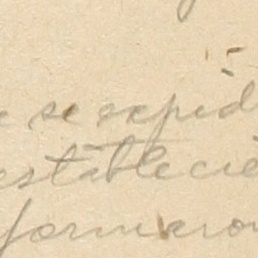 se expid
establecie
formaron